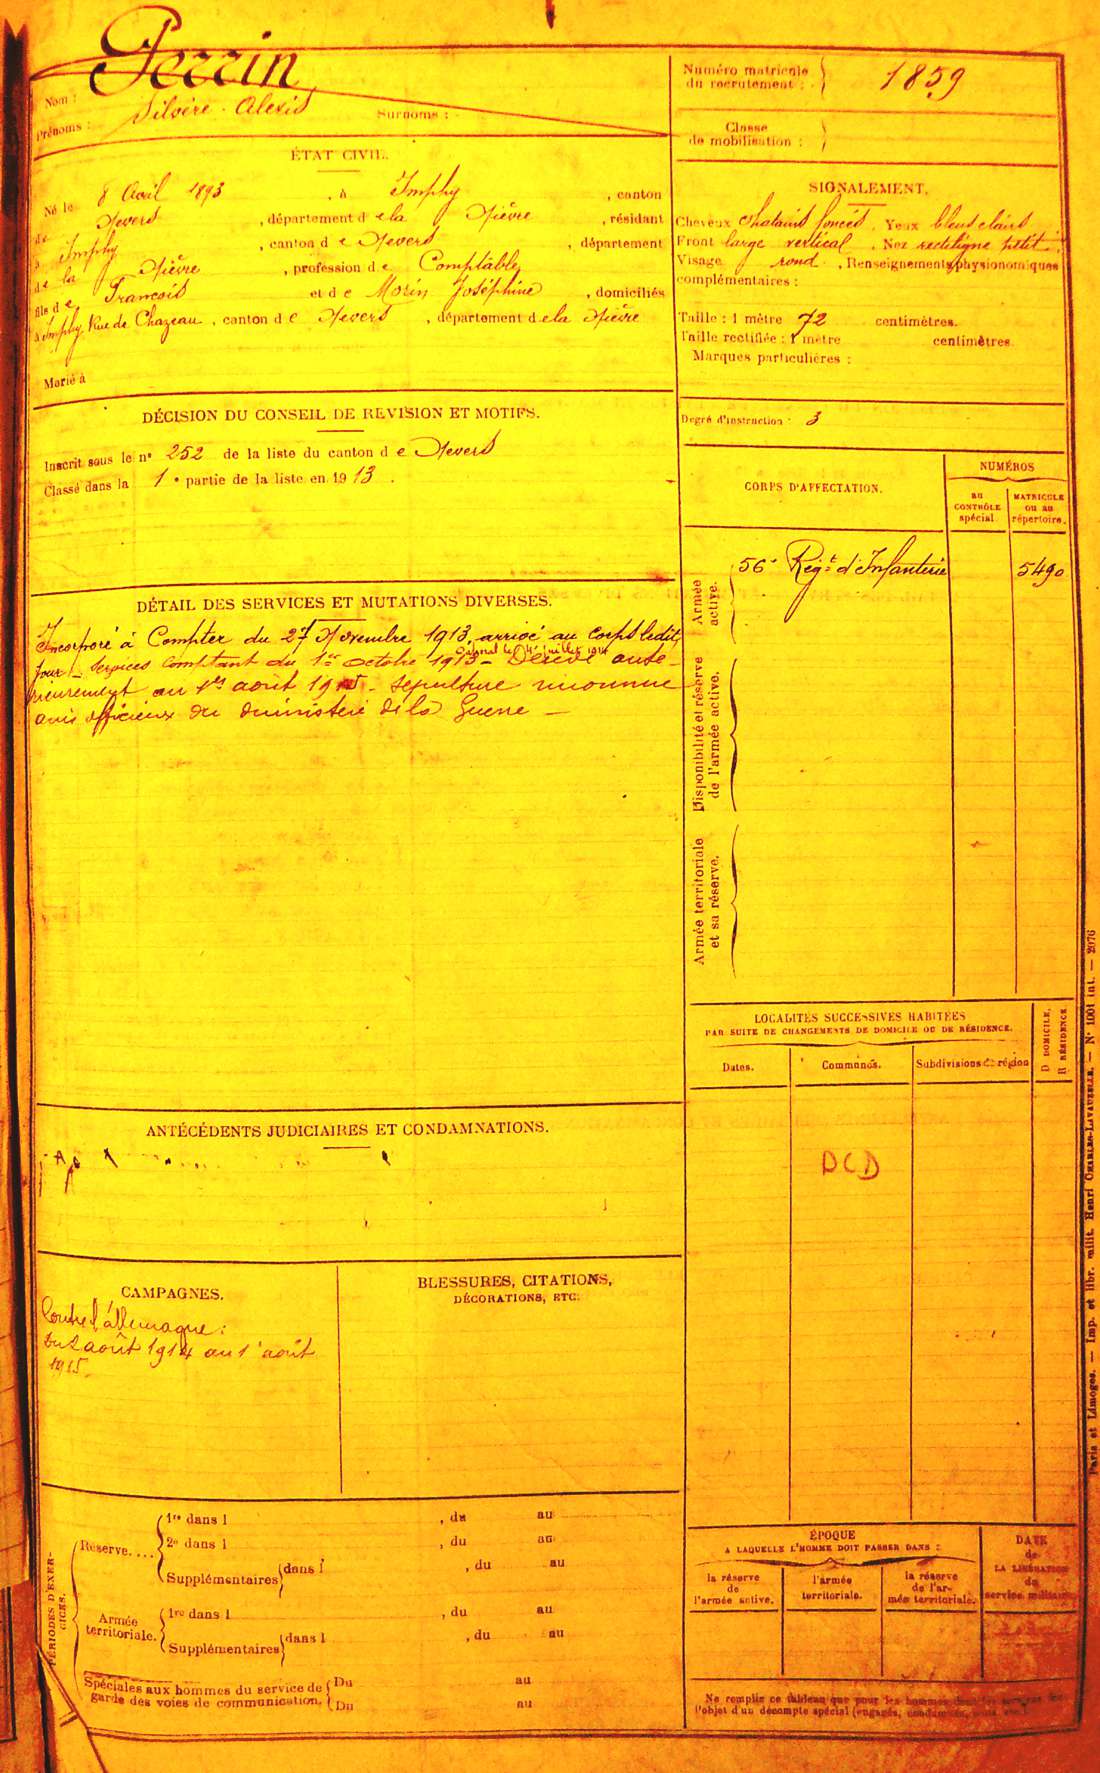 Nom : Perrin
Prénoms : Silvère - Alexis Surnoms :
Numéro matricule du recrutement : 1859
Classe de mobilisation :
ÉTAT CIVIL.
Né le 8 Avril 1893, à Imphy, canton
de Nevers, département de la Nièvre, résidant
à Imphy, canton de Nevers, département
de la Nièvre, profession de Comptable
fils de François et de Morin Joséphine, domiciliés
à Imphy, Rue de Chazeau, canton de Nevers, département de la Nièvre
Marié à
SIGNALEMENT.
Cheveux chatains foncés. Yeux bleus clairs
Front large vertical. Nez rectiligne petit.
Visage rond. Renseignements physionomiques
complémentaires :
Taille : 1 mètre 72 centimètres.
Taille rectifiée : 1 mètre centimètres.
Marques particulières :
Degré d'instruction : 3
DÉCISION DU CONSEIL DE REVISION ET MOTIFS.
Inscrit sous le n° 252 de la liste du canton de Nevers
Classé dans la 1e partie de la liste en 1913.
CORPS D'AFFECTATION.
NUMÉROS
AU CONTRÔLE spécial.
MATRICULE ou au répertoire.
Armée active.
56e Régt d'Infanterie 5490
Disponibilité et réserve de l'armée active.
Armée territoriale et sa réserve.
DÉTAIL DES SERVICES ET MUTATIONS DIVERSES.
Incorporé à Compter du 27 Novembre 1913, arrivé au corps ledit
jour - Services comptant du 1er octobre 1913 - Décédé anté-
Caporal le 4 juillet 1914
rieurement au 1er août 1915 - sépulture inconnue
avis officieux du ministère de la Guerre -
LOCALITÉS SUCCESSIVES HABITÉES
PAR SUITE DE CHANGEMENTS DE DOMICILE OU DE RÉSIDENCE.
D DOMICILE,
R RÉSIDENCE.
Dates. Communes. Subdivisions de région
DCD
ANTÉCÉDENTS JUDICIAIRES ET CONDAMNATIONS.
CAMPAGNES.
Contre l'allemagne :
Du 2 août 1914 au 1er août
1915
BLESSURES, CITATIONS,
DÉCORATIONS, ETC.
PÉRIODES D'EXERCICES.
Réserve....
1re dans l , du au
2e dans l , du au
Supplémentaires dans l , du au
Armée territoriale.
1re dans l , du au
Supplémentaires dans l , du au
Spéciales aux hommes du service de garde des voies de communication.
Du au
Du au
ÉPOQUE
A LAQUELLE L'HOMME DOIT PASSER DANS :
la réserve de l'armée active.
l'armée territoriale.
la réserve de l'armée territoriale.
DATE de LA LIBÉRATION du service militaire
Ne remplir ce tableau que pour les hommes dont les services font
l'objet d'un décompte spécial (engagés, condamnés, omis, etc.)
Paris et Limoges. — Imp. et libr. milit. Henri CHARLES-LAVAUZELLE. — N° 1001 int. — 2076